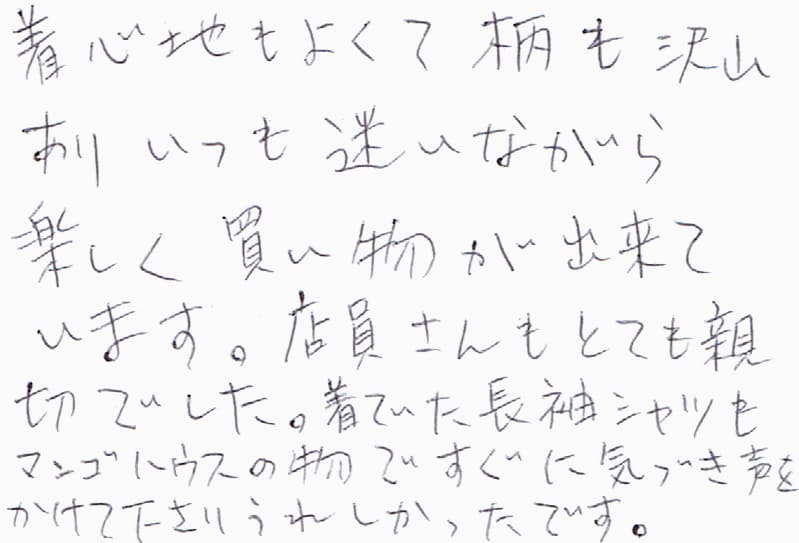 着心地もよくて 柄も 沢山
あり いつも 迷いながら
楽しく 買い物が 出来て
います。店員さんもとても親
切でした。着ていた長袖シャツも
マンゴハウスの物ですぐに気づき声を
かけて下さりうれしかったです。